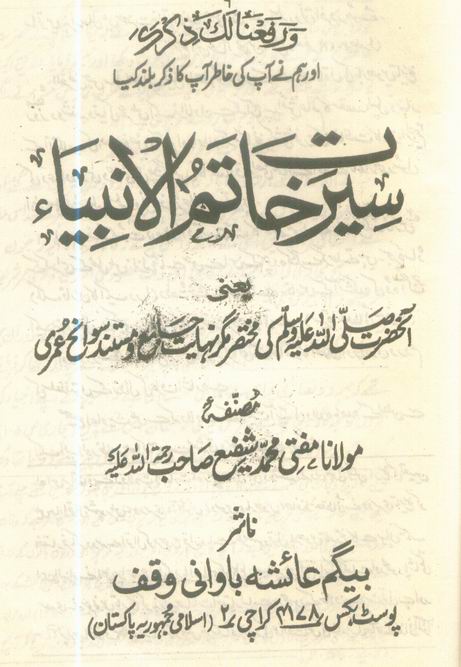 وَرَفَعْنَا لَكَ ذِكْرَكَ
اور ہم نے آپ کی خاطر آپ کا ذکر بلند کیا
سیرت خاتم الانبیاء
یعنی
آنحضرت صلی اللہ علیہ وسلم کی مختصر مگر نہایت جامع و مستند سوانح عمری
مصنفہٗ
مولانا مفتی محمد شفیع صاحب رحمۃ اللہ علیہ
ناشر
بیگم عائشہ باوانی وقف
پوسٹ بکس ۴۱۷۸، کراچی ۲ (اسلامی جمہوریہ پاکستان)